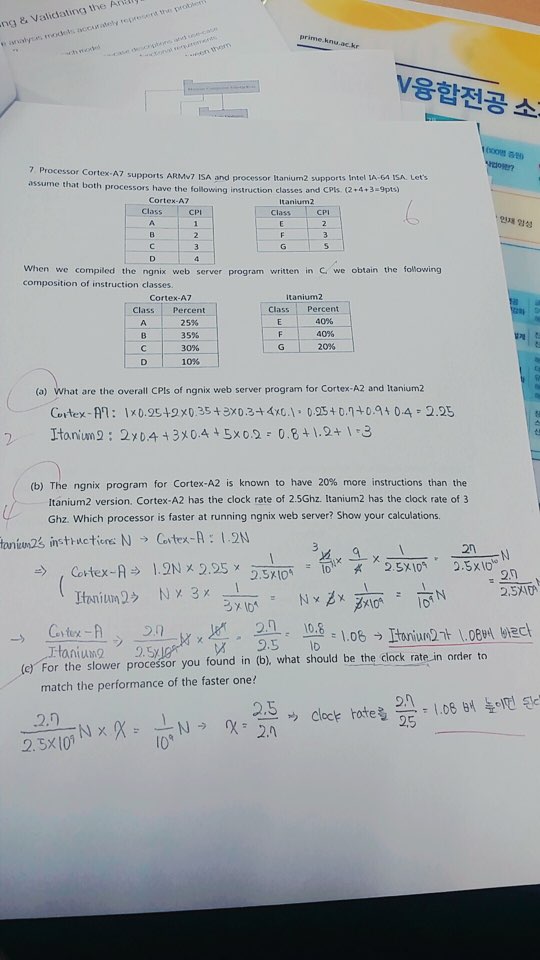 ng & Validating the Analy
e analysis models accurately represent the problem
prime.knu.ac.kr
W융합전공 소
인재 양성
7. Processor Cortex-A7 supports ARMv7 ISA and processor Itanium2 supports Intel IA-64 ISA. Let's
assume that both processors have the following instruction classes and CPIs. (2+4+3=9pts)
6
Cortex-A7 Itanium2
Class CPI Class CPI
A 1 E 2
B 2 F 3
C 3 G 5
D 4
When we compiled the ngnix web server program written in C, we obtain the following
composition of instruction classes.
Cortex-A7 Itanium2
Class Percent Class Percent
A 25% E 40%
B 35% F 40%
C 30% G 20%
D 10%
(a) What are the overall CPIs of ngnix web server program for Cortex-A2 and Itanium2
Cortex-A7 : 1×0.25+2×0.35+3×0.3+4×0.1 = 0.25+0.7+0.9+0.4 = 2.25
2 Itanium2 : 2×0.4+3×0.4+5×0.2 = 0.8+1.2+1=3
(b) The ngnix program for Cortex-A2 is known to have 20% more instructions than the
Itanium2 version. Cortex-A2 has the clock rate of 2.5Ghz. Itanium2 has the clock rate of 3
4 Ghz. Which processor is faster at running ngnix web server? Show your calculations.
tanium2's instructions N → Cortex-A : 1.2N
⇒ Cortex-A ⇒ 1.2N × 2.25 × 1/2.5×10⁹ = 12/10 N × 9/4 × 1/2.5×10⁹ = 27/2.5×10¹⁰ N = 2.7/2.5×10⁹ N
Itanium2 ⇒ N × 3 × 1/3×10⁹ = N × 3 × 1/3×10⁹ = 1/10⁹ N
→ Cortex-A/Itanium2 ⇒ 2.7/2.5×10⁹ N × 10⁹/N = 2.7/2.5 = 10.8/10 = 1.08 → Itanium2가 1.08배 빠르다
(c) For the slower processor you found in (b), what should be the clock rate in order to
match the performance of the faster one?
2.7/2.5×10⁹ N × x = 1/10⁹ N → x = 2.5/2.7 ⇒ clock rate를 2.7/2.5 = 1.08 배 높이면 된다